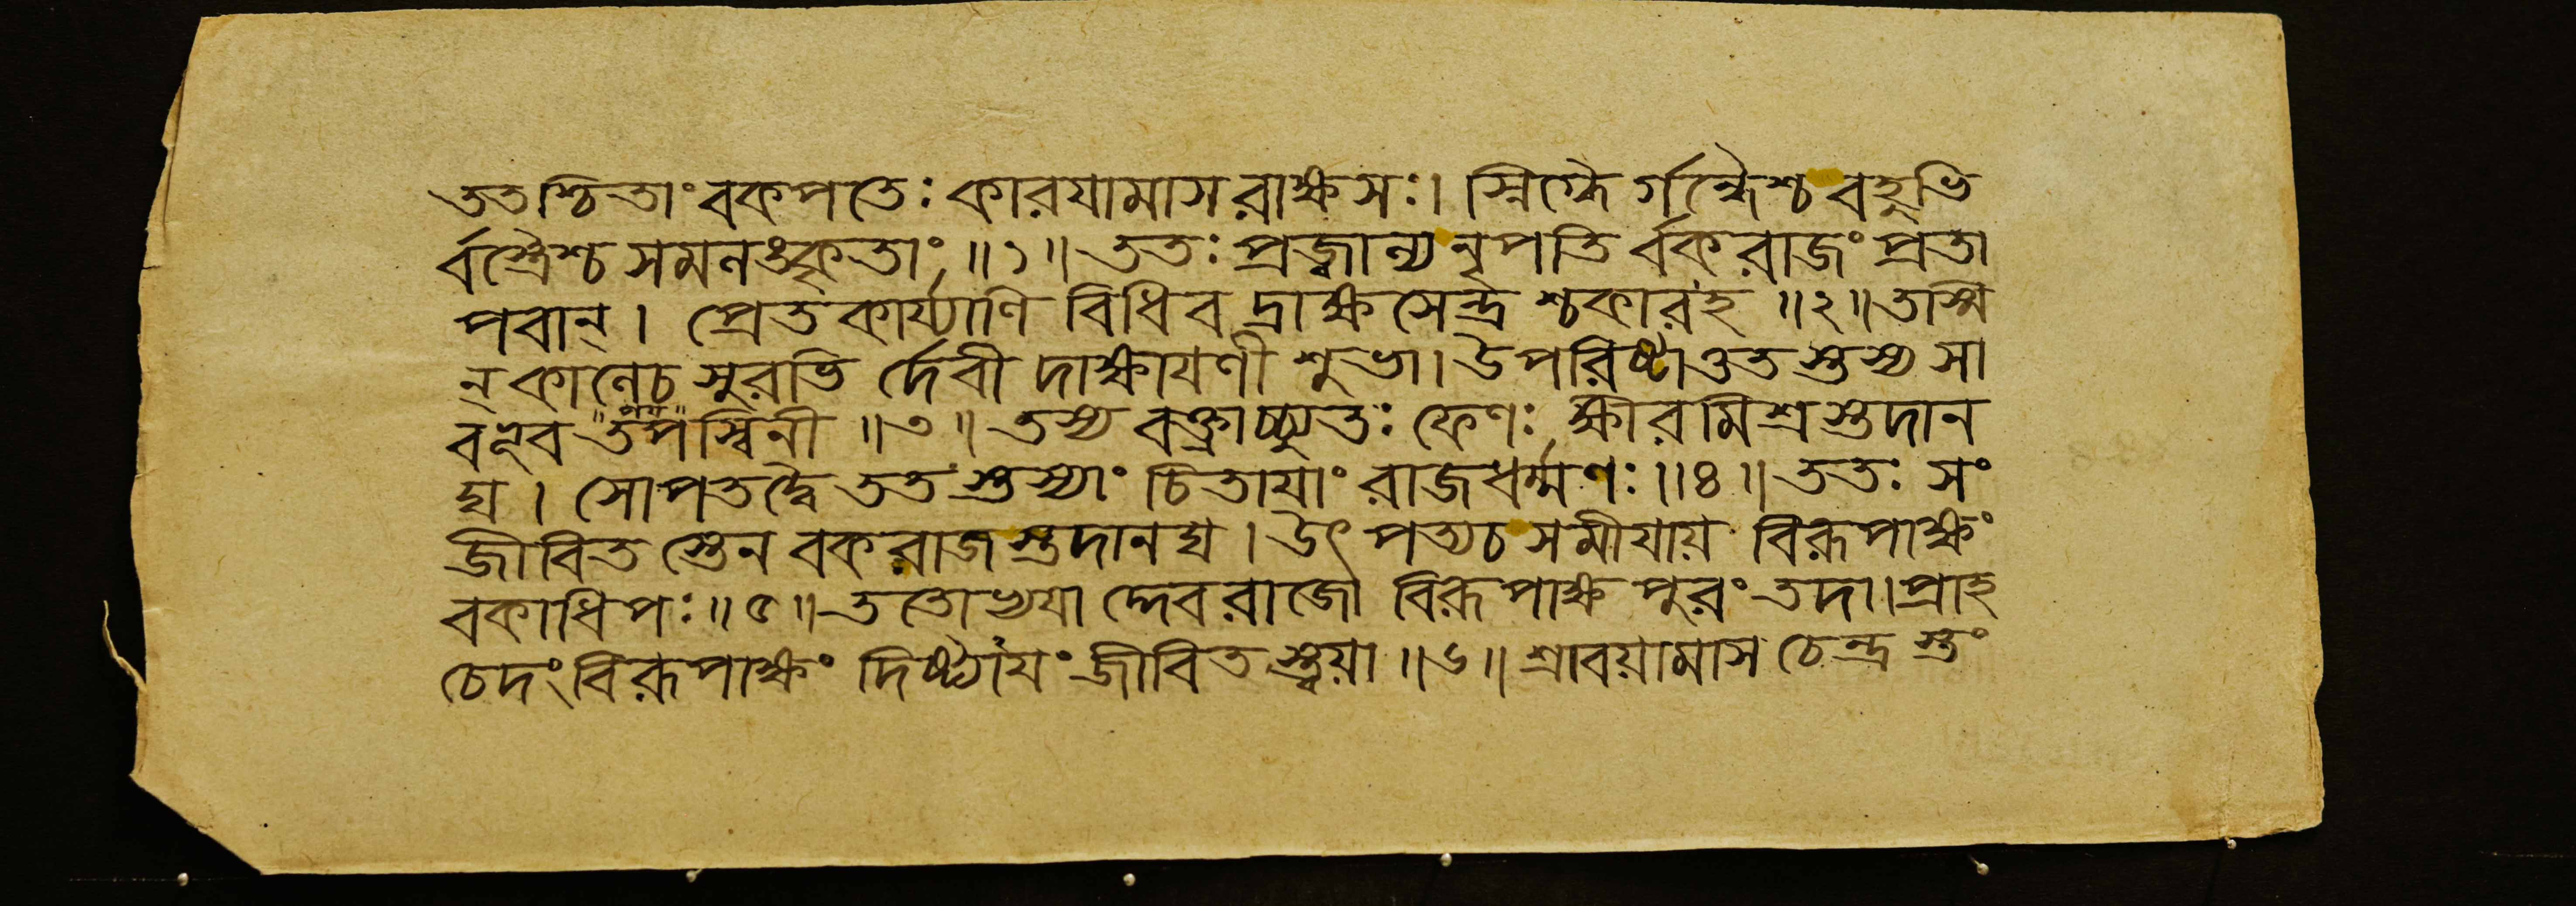 ততশ্চিতাং বকপতেঃ কারযামাস রাক্ষসঃ। স্নিগ্ধৈ র্গন্ধৈশ্চ বহুভি
র্বস্ত্রৈশ্চ সমলঙ্কৃতাং ॥১॥ ততঃ প্রজ্বাল্য নৃপতি র্বকরাজং প্রতা
পবান্। প্রেতকার্য্যাণি বিধিব দ্রাক্ষসেন্দ্র শ্চকারহ ॥২॥ তস্মি
ন্ কালেচ সুরভি র্দেবী দাক্ষাযণী শুভা। উপরিষ্টাত্তত স্তস্য সা
বভূব পয়স্বিনী ॥৩॥ তস্য বক্ত্রাচ্চ্যুতঃ ফেণঃ ক্ষীরমিশ্র স্তদান
ঘ। সোপতদ্বৈ তত স্তস্যাং চিতাযাং রাজধর্ম্মণঃ ॥৪॥ ততঃ সং
জীবিত স্তেন বকরাজ স্তদানঘ। উৎপত্যচ সমীযায় বিরূপাক্ষং
বকাধিপঃ ॥৫॥ ততোভ্যযা দ্দেবরাজো বিরূপাক্ষ পুরং তদা। প্রাহ
চেদং বিরূপাক্ষং দিষ্ট্যাযং জীবিত স্ত্বয়া ॥৬॥ শ্রাবয়ামাস চেন্দ্র স্তং